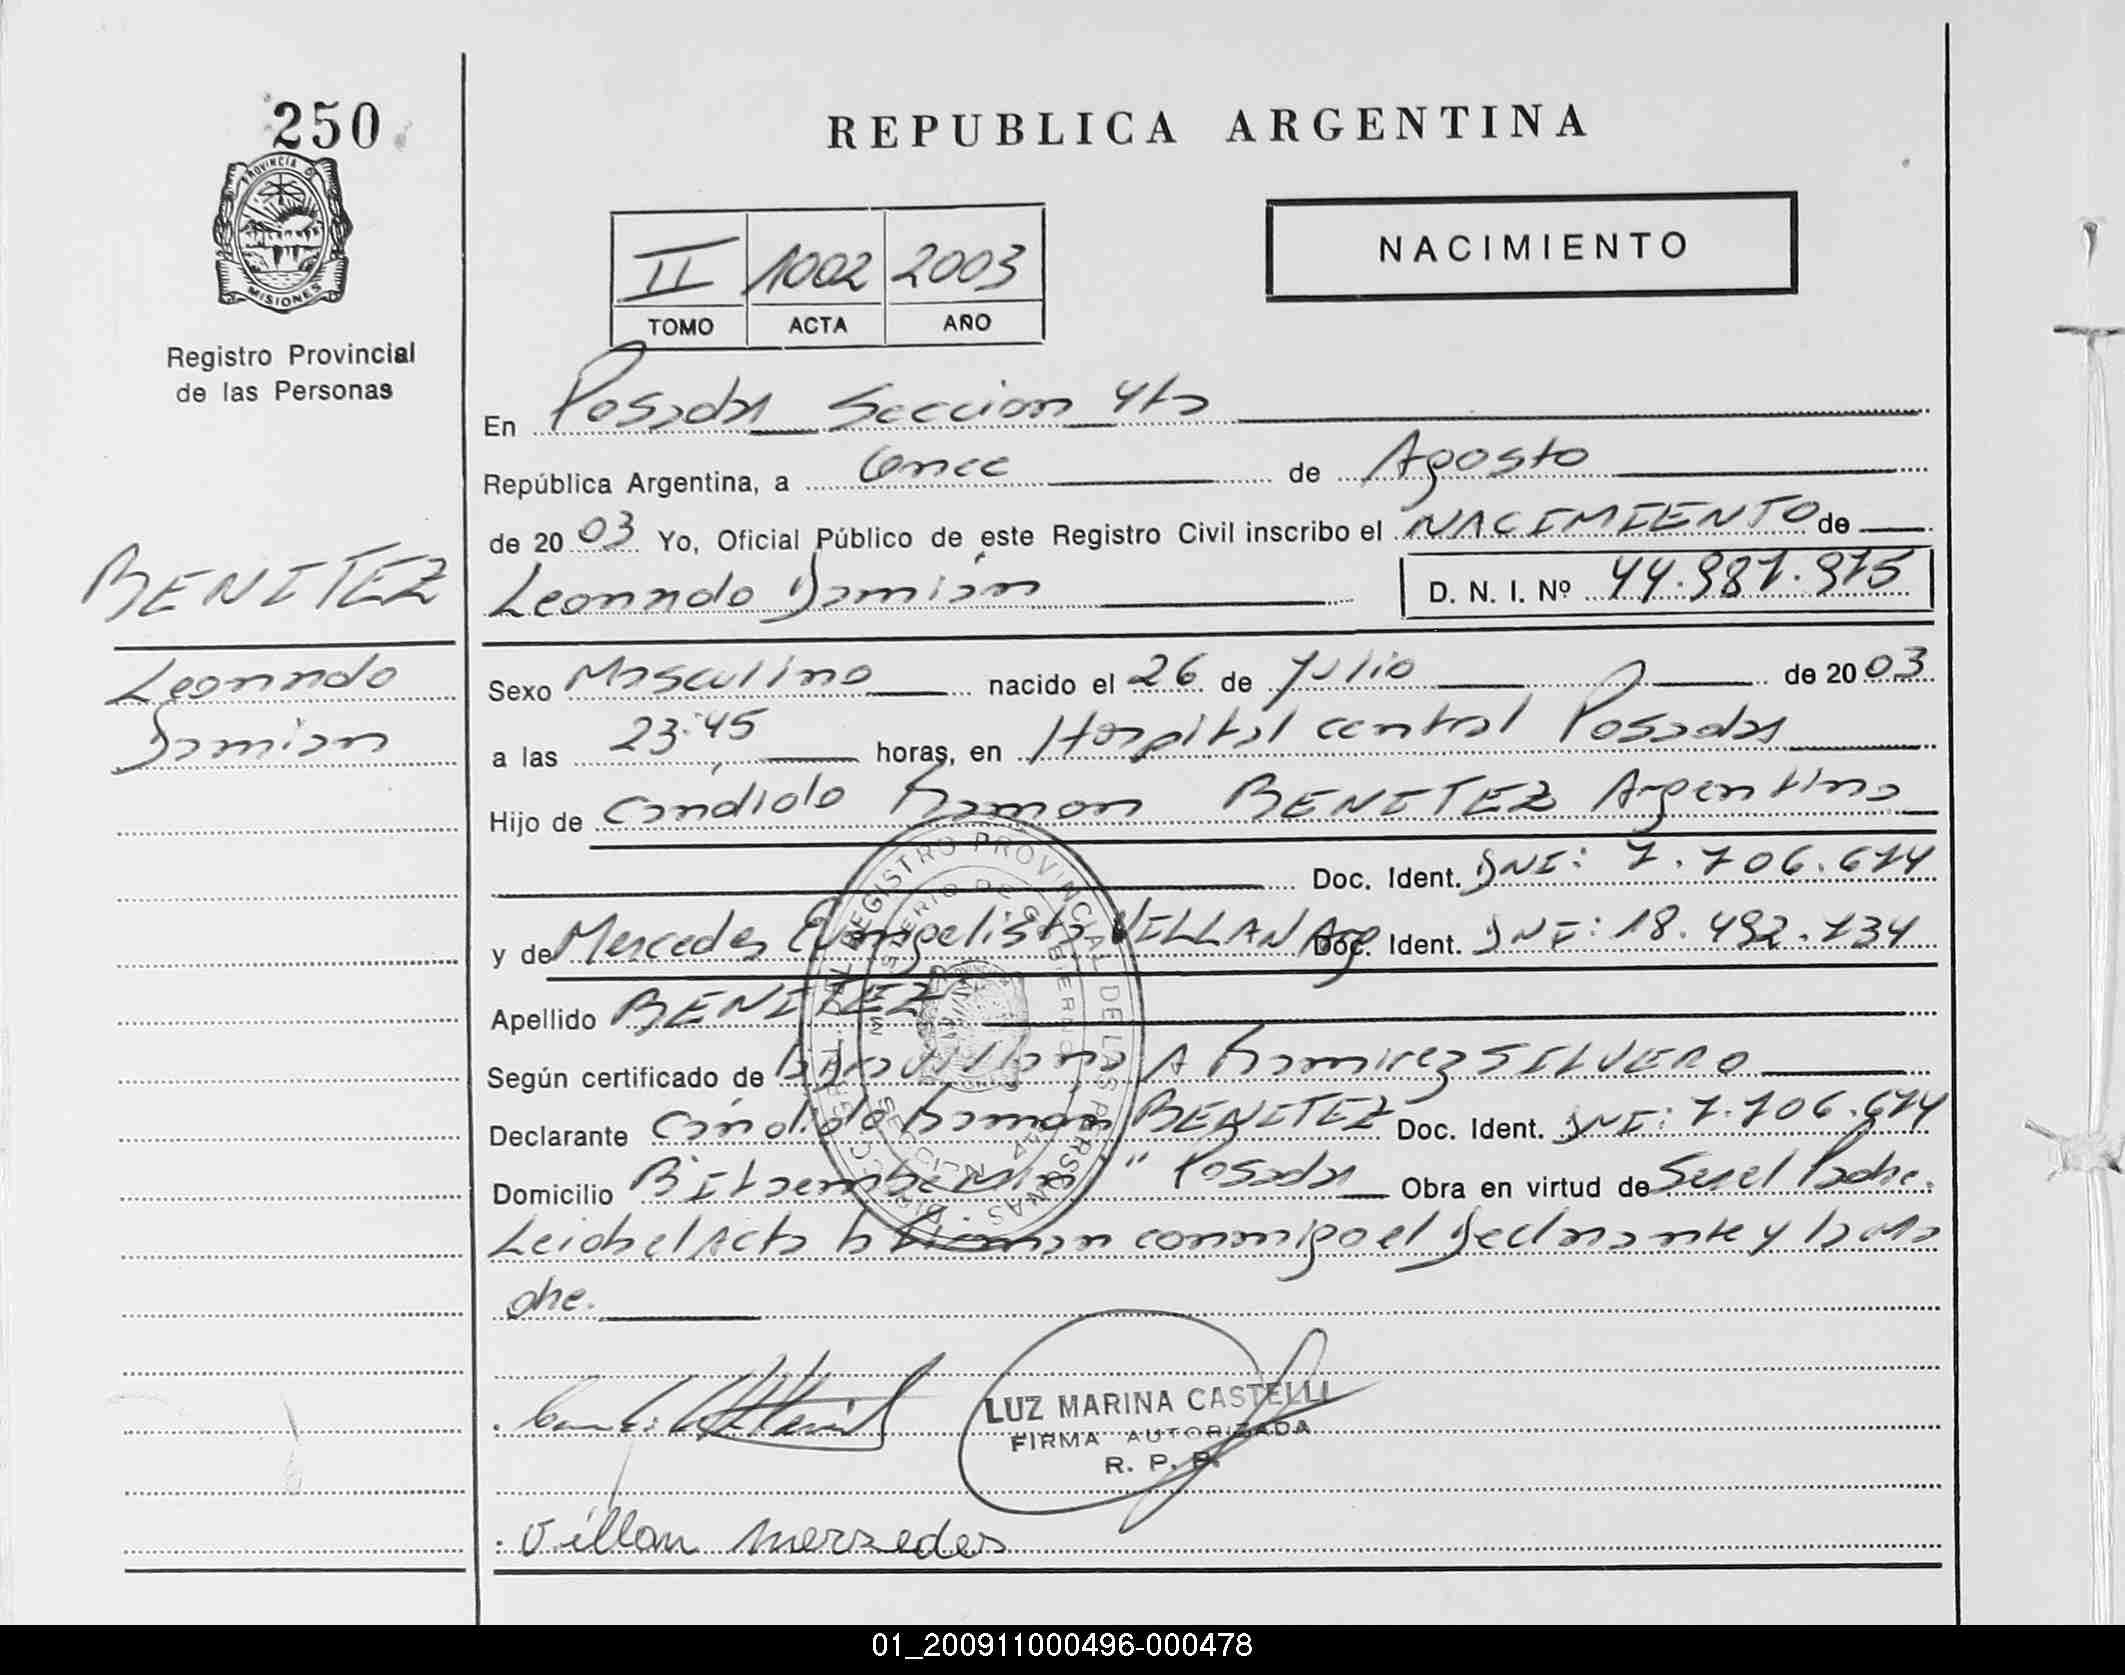 250
PROVINCIA DE
MISIONES
Registro Provincial
de las Personas
BENITEZ
Leonardo
Damian
REPUBLICA ARGENTINA
II 1002 2003
TOMO ACTA AÑO
NACIMIENTO
En Posadas Seccion 4ta
República Argentina, a Once de Agosto
de 20 03 Yo, Oficial Público de este Registro Civil inscribo el NACIMIENTO de
Leonardo Damián D. N. I. Nº 44.987.975
Sexo Masculino nacido el 26 de Julio de 20 03
a las 23:45 horas, en Hospital central Posadas
Hijo de Cándido Ramon BENITEZ Argentino
Doc. Ident. DNI: 7.706.674
y de Mercedes Evangelista VILLAN Arg Doc. Ident. DNI: 18.492.734
Apellido BENITEZ
Según certificado de A Ramirez SILVERO
Declarante Cándido Ramon BENITEZ Doc. Ident. DNI: 7.706.674
Domicilio Bº Itaembé Mini " Posadas Obra en virtud de Ser el Padre.
Leida el Acta la firman conmigo el Declarante y la Ma
dre.
LUZ MARINA CASTELLI
FIRMA AUTORIZADA
R. P. P.
Villan Merzedes
REGISTRO PROVINCIAL DE LAS PERSONAS
MINISTERIO DE GOBIERNO
01_200911000496-000478